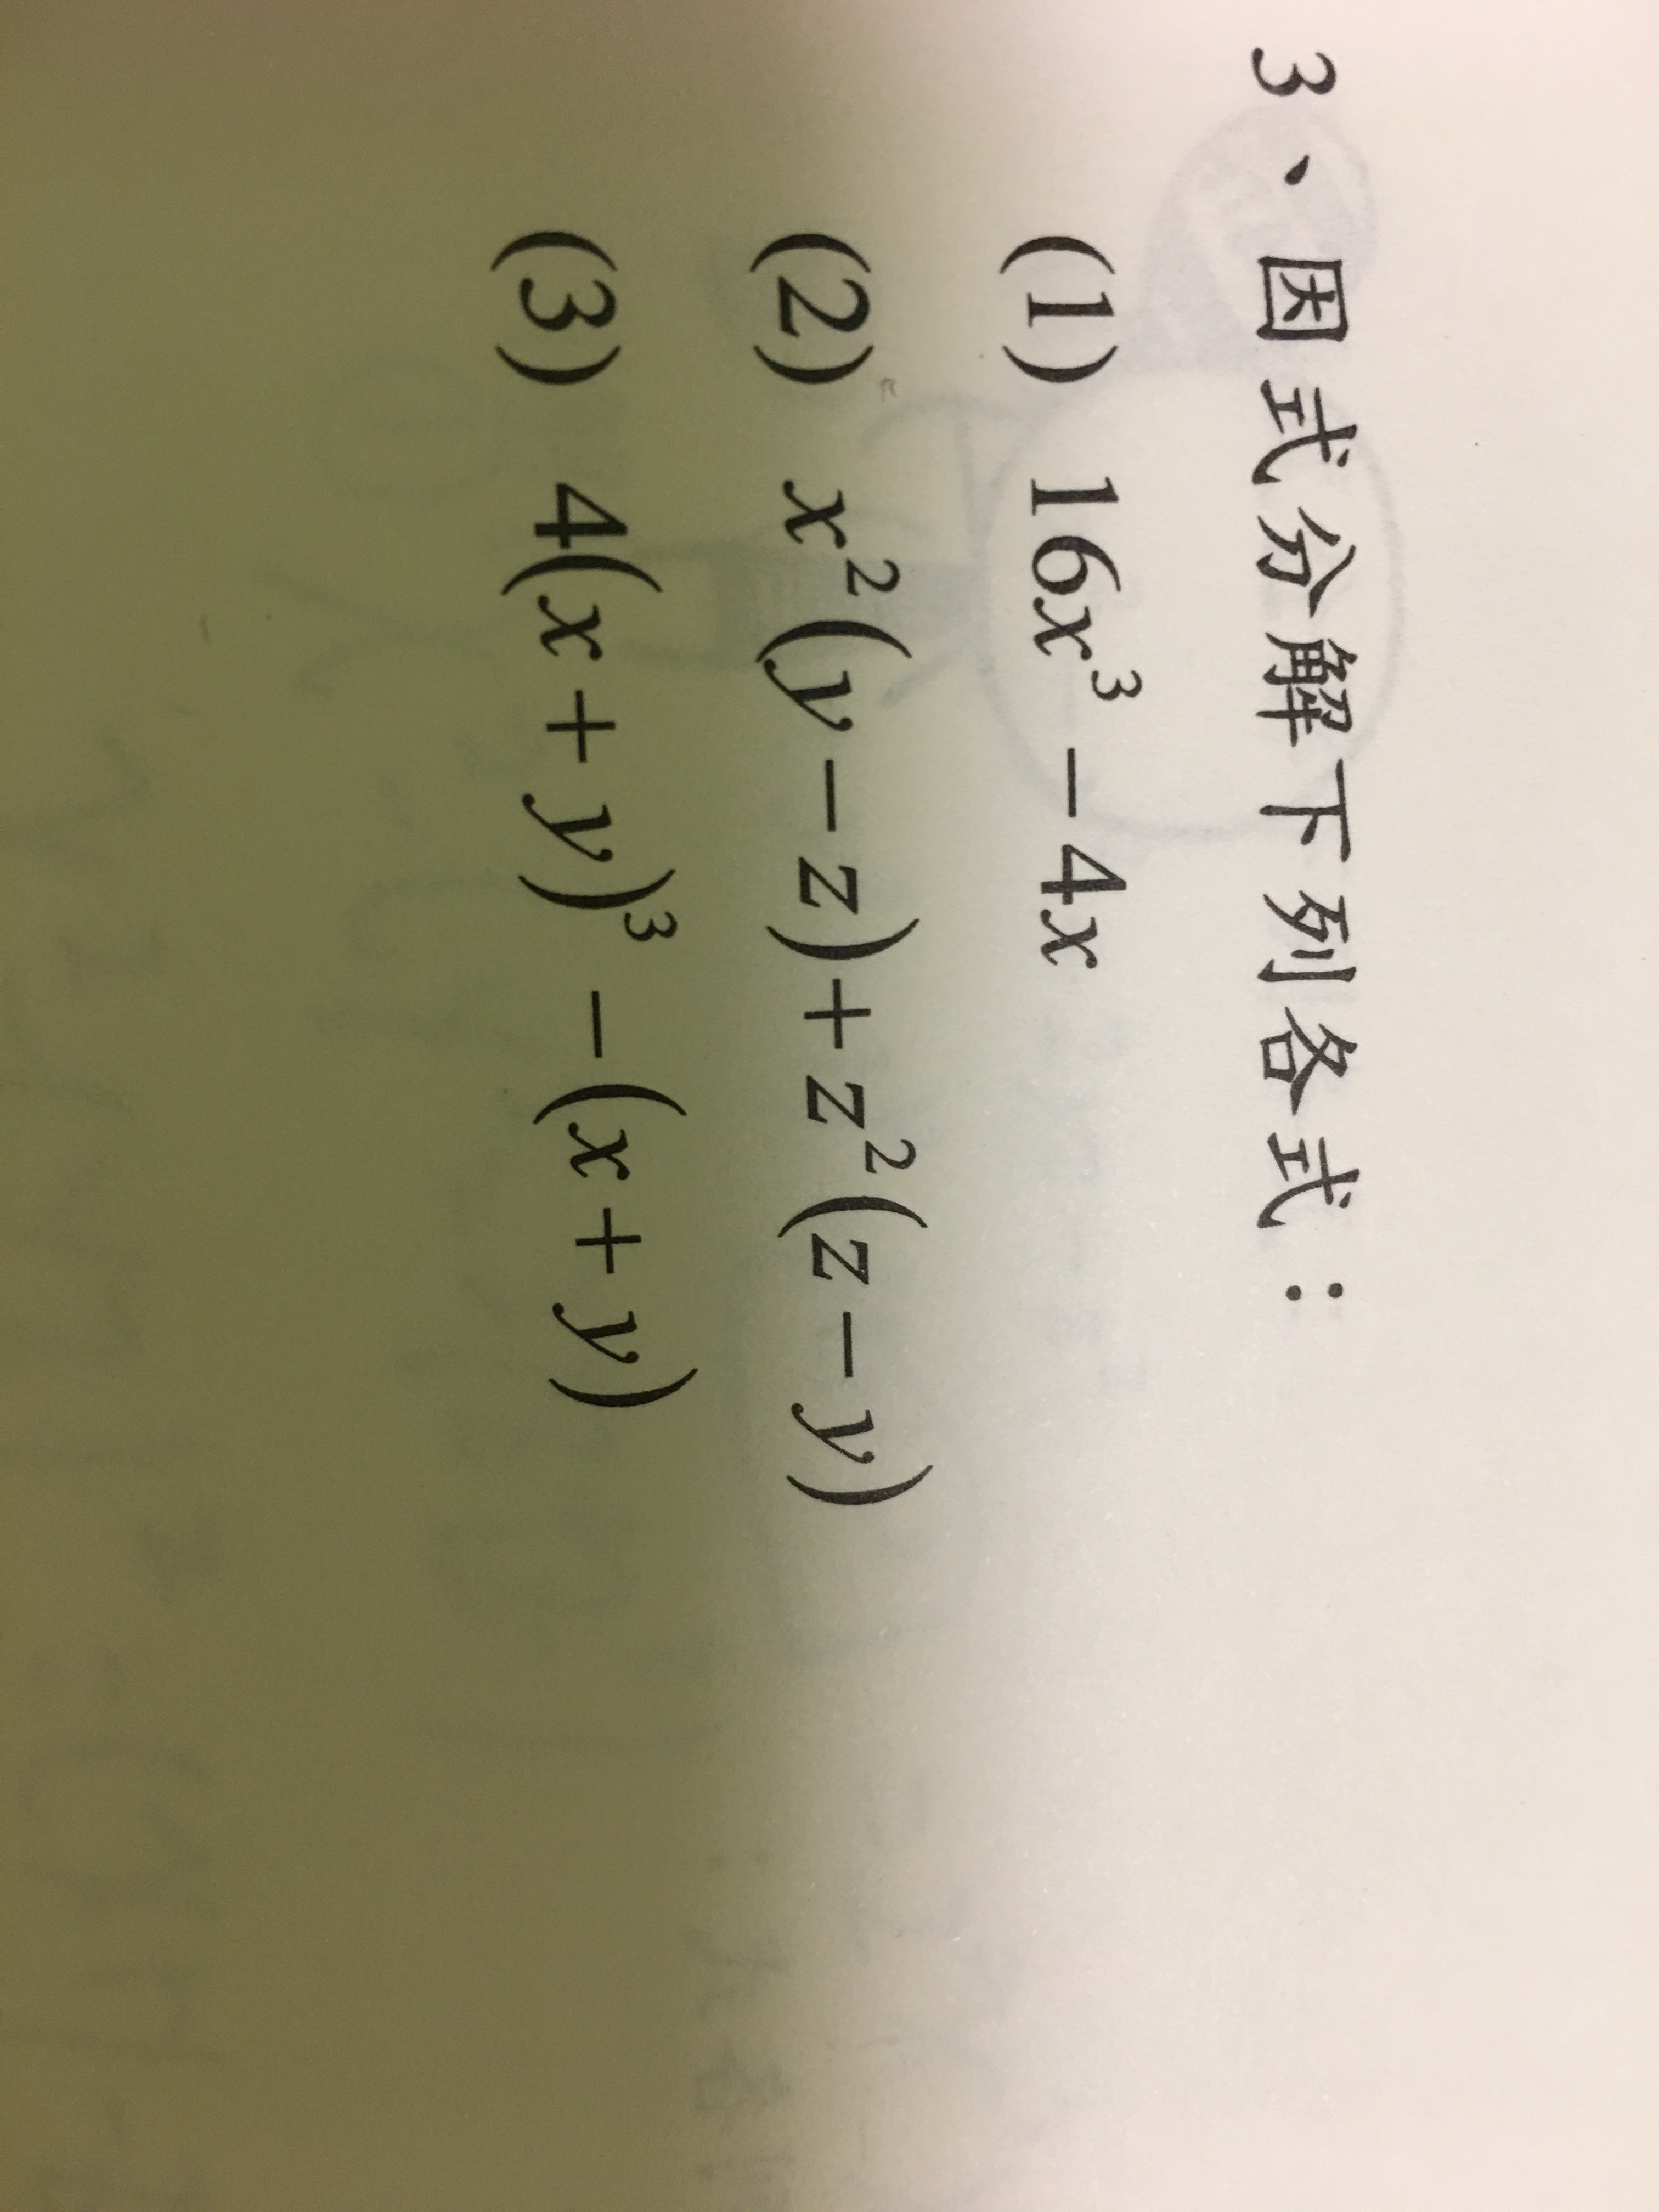 3、因式分解下列各式：
(1) 16x³ − 4x
(2) x²(y − z) + z²(z − y)
(3) 4(x + y)³ − (x + y)